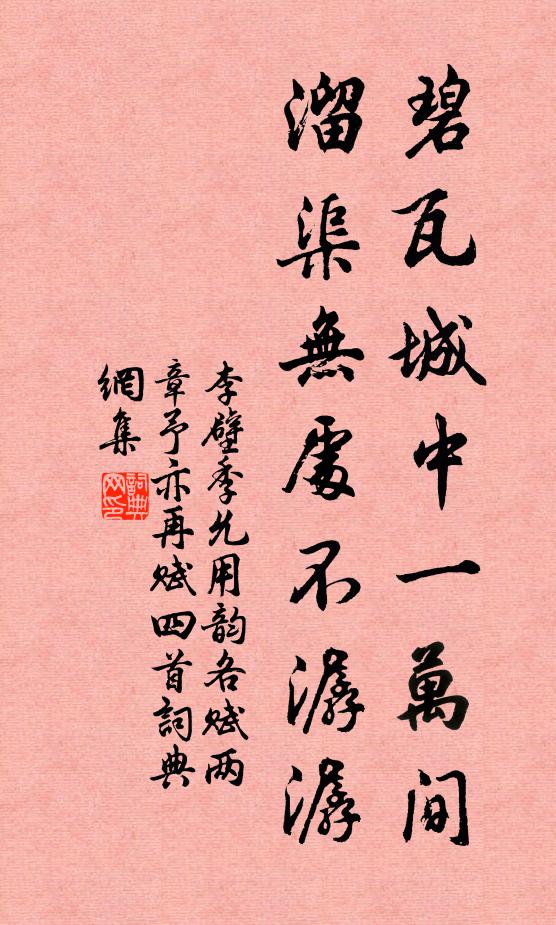 碧瓦城中一萬间
溜渠無處不潺潺
李壁季允用韵各赋两
章予亦再赋四首詞典
網集
詞典
网印